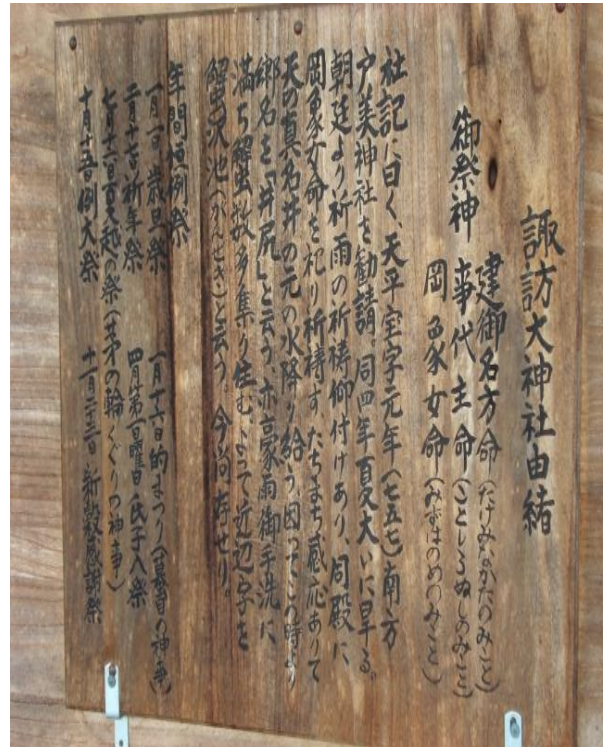 諏訪大神社由緒
御祭神 建御名方命(たけみなかたのみこと)
事代主命(ことしろぬしのみこと)
岡象女命(みずはのめのみこと)
社記に曰く、天平宝字元年(七五七)南方
戸美神社を勧請。同四年夏大いに旱る。
朝廷より祈雨の祈祷仰付けあり、同殿に
岡象女命を祀り祈祷す。たちまち感応ありて
天の真名井の元の水降り給う。因ってこの時より
郷名を「井尻」と云う。亦豪雨御手洗に
満ち蟹数多集り住む。よって近辺字を
蟹沢池(がんどき)と云う。今尚存せり。
年間恒例祭
一月一日 歳旦祭 一月十六日 的まつり(蟇目の神事)
二月十七日 祈年祭 四月第一日曜日 氏子入祭
七月十一日 夏越の祭(茅の輪くぐりの神事)
十月十五日 例大祭 十一月二十三日 新穀感謝祭